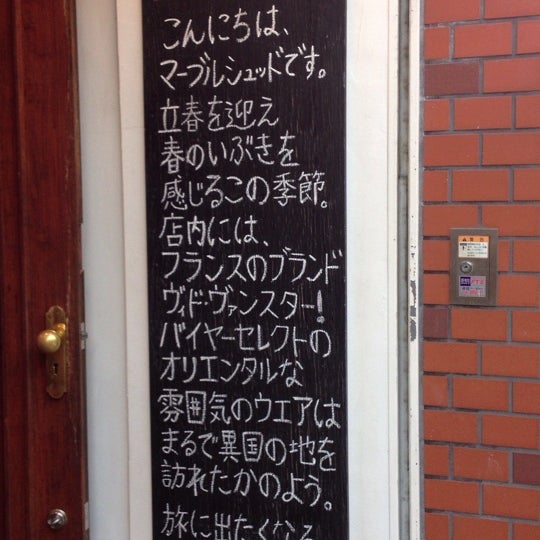 こんにちは、
マーブルシュッドです。
立春を迎え
春のいぶきを
感じるこの季節。
店内には、
フランスのブランド
ヴィド・ヴァンスター!
バイヤーセレクトの
オリエンタルな
雰囲気のウエアは
まるで異国の地を
訪れたかのよう。
旅に出たくなる